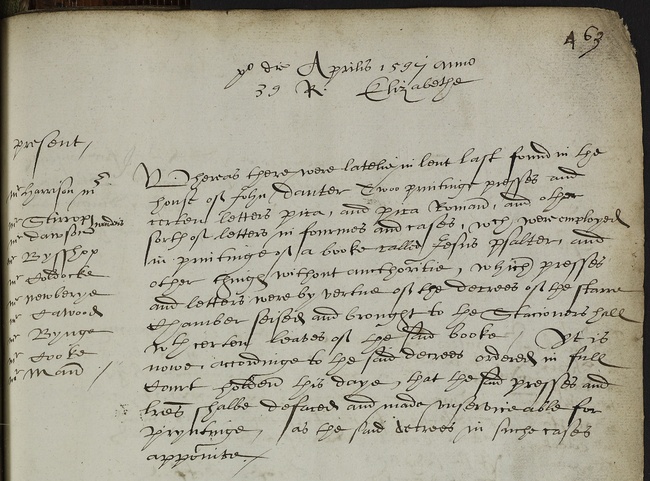 463
po die Aprilis 1597 anno
39 R. Elizabethe
present,
mr harrison mr
mr Stirrop
mr dawson wardens
mr Bysshop
mr Coldocke
mr newberye
mr Cawood
mr Bynge
mr Cooke
mr Man
Whereas there were latelie in lent last found in the
house of John Danter Two printinge presses and
certen letters pica, and pica Roman, and other
sortes of letters in fourmes and cases, wch were employed
in printinge of a booke called Jesus psalter, and
other thinges without aucthoritie, which presses
and letters were by vertue of the decrees of the starre
Chamber seised and brought to the Stacioners hall
wth certen leaves of the said booke. Yt is
nowe accordinge to the said decrees ordered in full
Court holden this daye, that the said presses and
lres shalbe defaced and made unserviceable for
pryntinge, as the said decrees in suche cases
appointe.